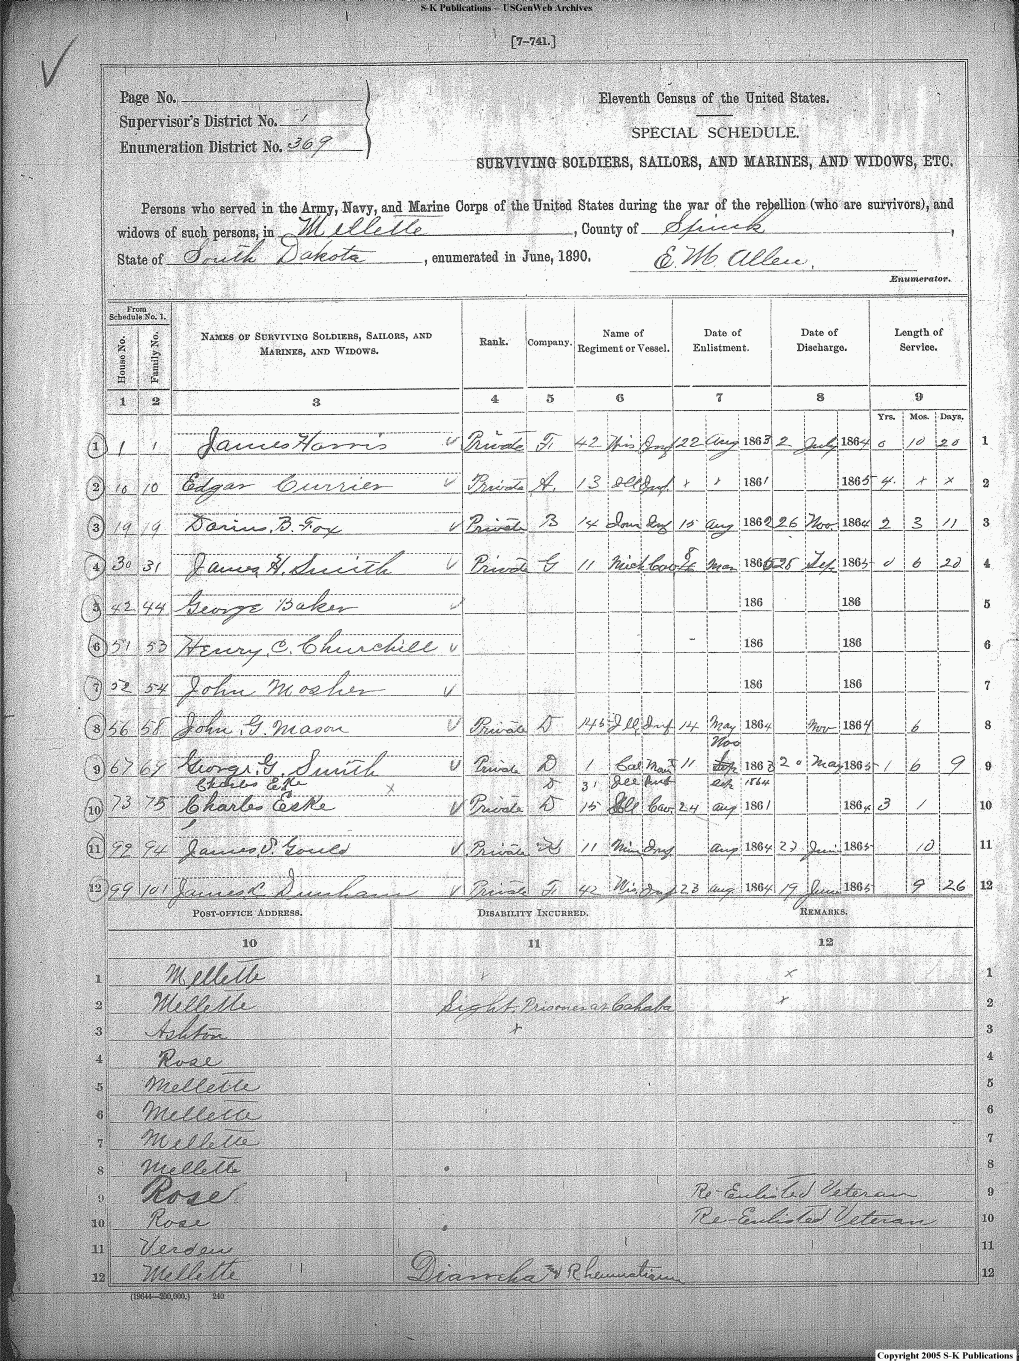 S-K Publications – USGenWeb Archives
[7-741.]
Page No.
Supervisor's District No. 1
Enumeration District No. 369
Eleventh Census of the United States.
SPECIAL SCHEDULE.
SURVIVING SOLDIERS, SAILORS, AND MARINES, AND WIDOWS, ETC.
Persons who served in the Army, Navy, and Marine Corps of the United States during the war of the rebellion (who are survivors), and
widows of such persons, in Mellette, County of Spink,
State of South Dakota, enumerated in June, 1890. E. M. Allen.
Enumerator.
From Schedule No. 1.
House No. Family No. NAMES OF SURVIVING SOLDIERS, SAILORS, AND MARINES, AND WIDOWS. Rank. Company. Name of Regiment or Vessel. Date of Enlistment. Date of Discharge. Length of Service.
1 2 3 4 5 6 7 8 9
Yrs. Mos. Days.
1 1 1 James Harris Private F. 42 Wis Inf 22 Aug 1863 2 July 1864 0 10 20 1
2 10 10 Edgar Currier Private A. 13 Ill Inf x x 1861 1865 4. x x 2
3 19 19 Darius. B. Fox Private B 14 Iow Inf 15 Aug 1862 26 Nov. 1864 2 3 11 3
4 30 31 James H. Smith Private G 11 Mich Cav 8 Mar 1865 28 Sep 1865 0 6 20 4
5 42 44 George Baker 186 186 5
6 51 53 Henry. C. Churchill 186 186 6
7 52 54 John Mosher 186 186 7
8 56 58 John. G. Mason Private D 145 Ill Inf 14 May 1864 Nov 1864 6 8
Nov
9 67 69 George. G. Smith Private D 1 Cal 11 Sep 1863 20 May 1865 1 6 9 9
Charles Eeke D 31 Ill 1864
10 73 75 Charles Eeke Private D 15 Ill Cav. 24 Aug 1861 1864 3 1 10
11 92 94 James. S. Gould Private 11 Min Inf Aug 1864 27 June 1865 10 11
12 99 101 James L Dunham Private F. 42 Wis Inf 23 Aug. 1864 19 June 1865 9 26 12
POST-OFFICE ADDRESS. DISABILITY INCURRED. REMARKS.
10 11 12
1 Mellette x 1
2 Mellette Sight. Prisoner at Cahaba x 2
3 Ashton x 3
4 Rose 4
5 Mellette 5
6 Mellette 6
7 Mellette 7
8 Mellette 8
9 Rose Re-Enlisted Veteran 9
10 Rose Re-Enlisted Veteran 10
11 Verden 11
12 Mellette Diarrhea & Rheumatism 12
(19644—200,000.) 240
Copyright 2005 S-K Publications